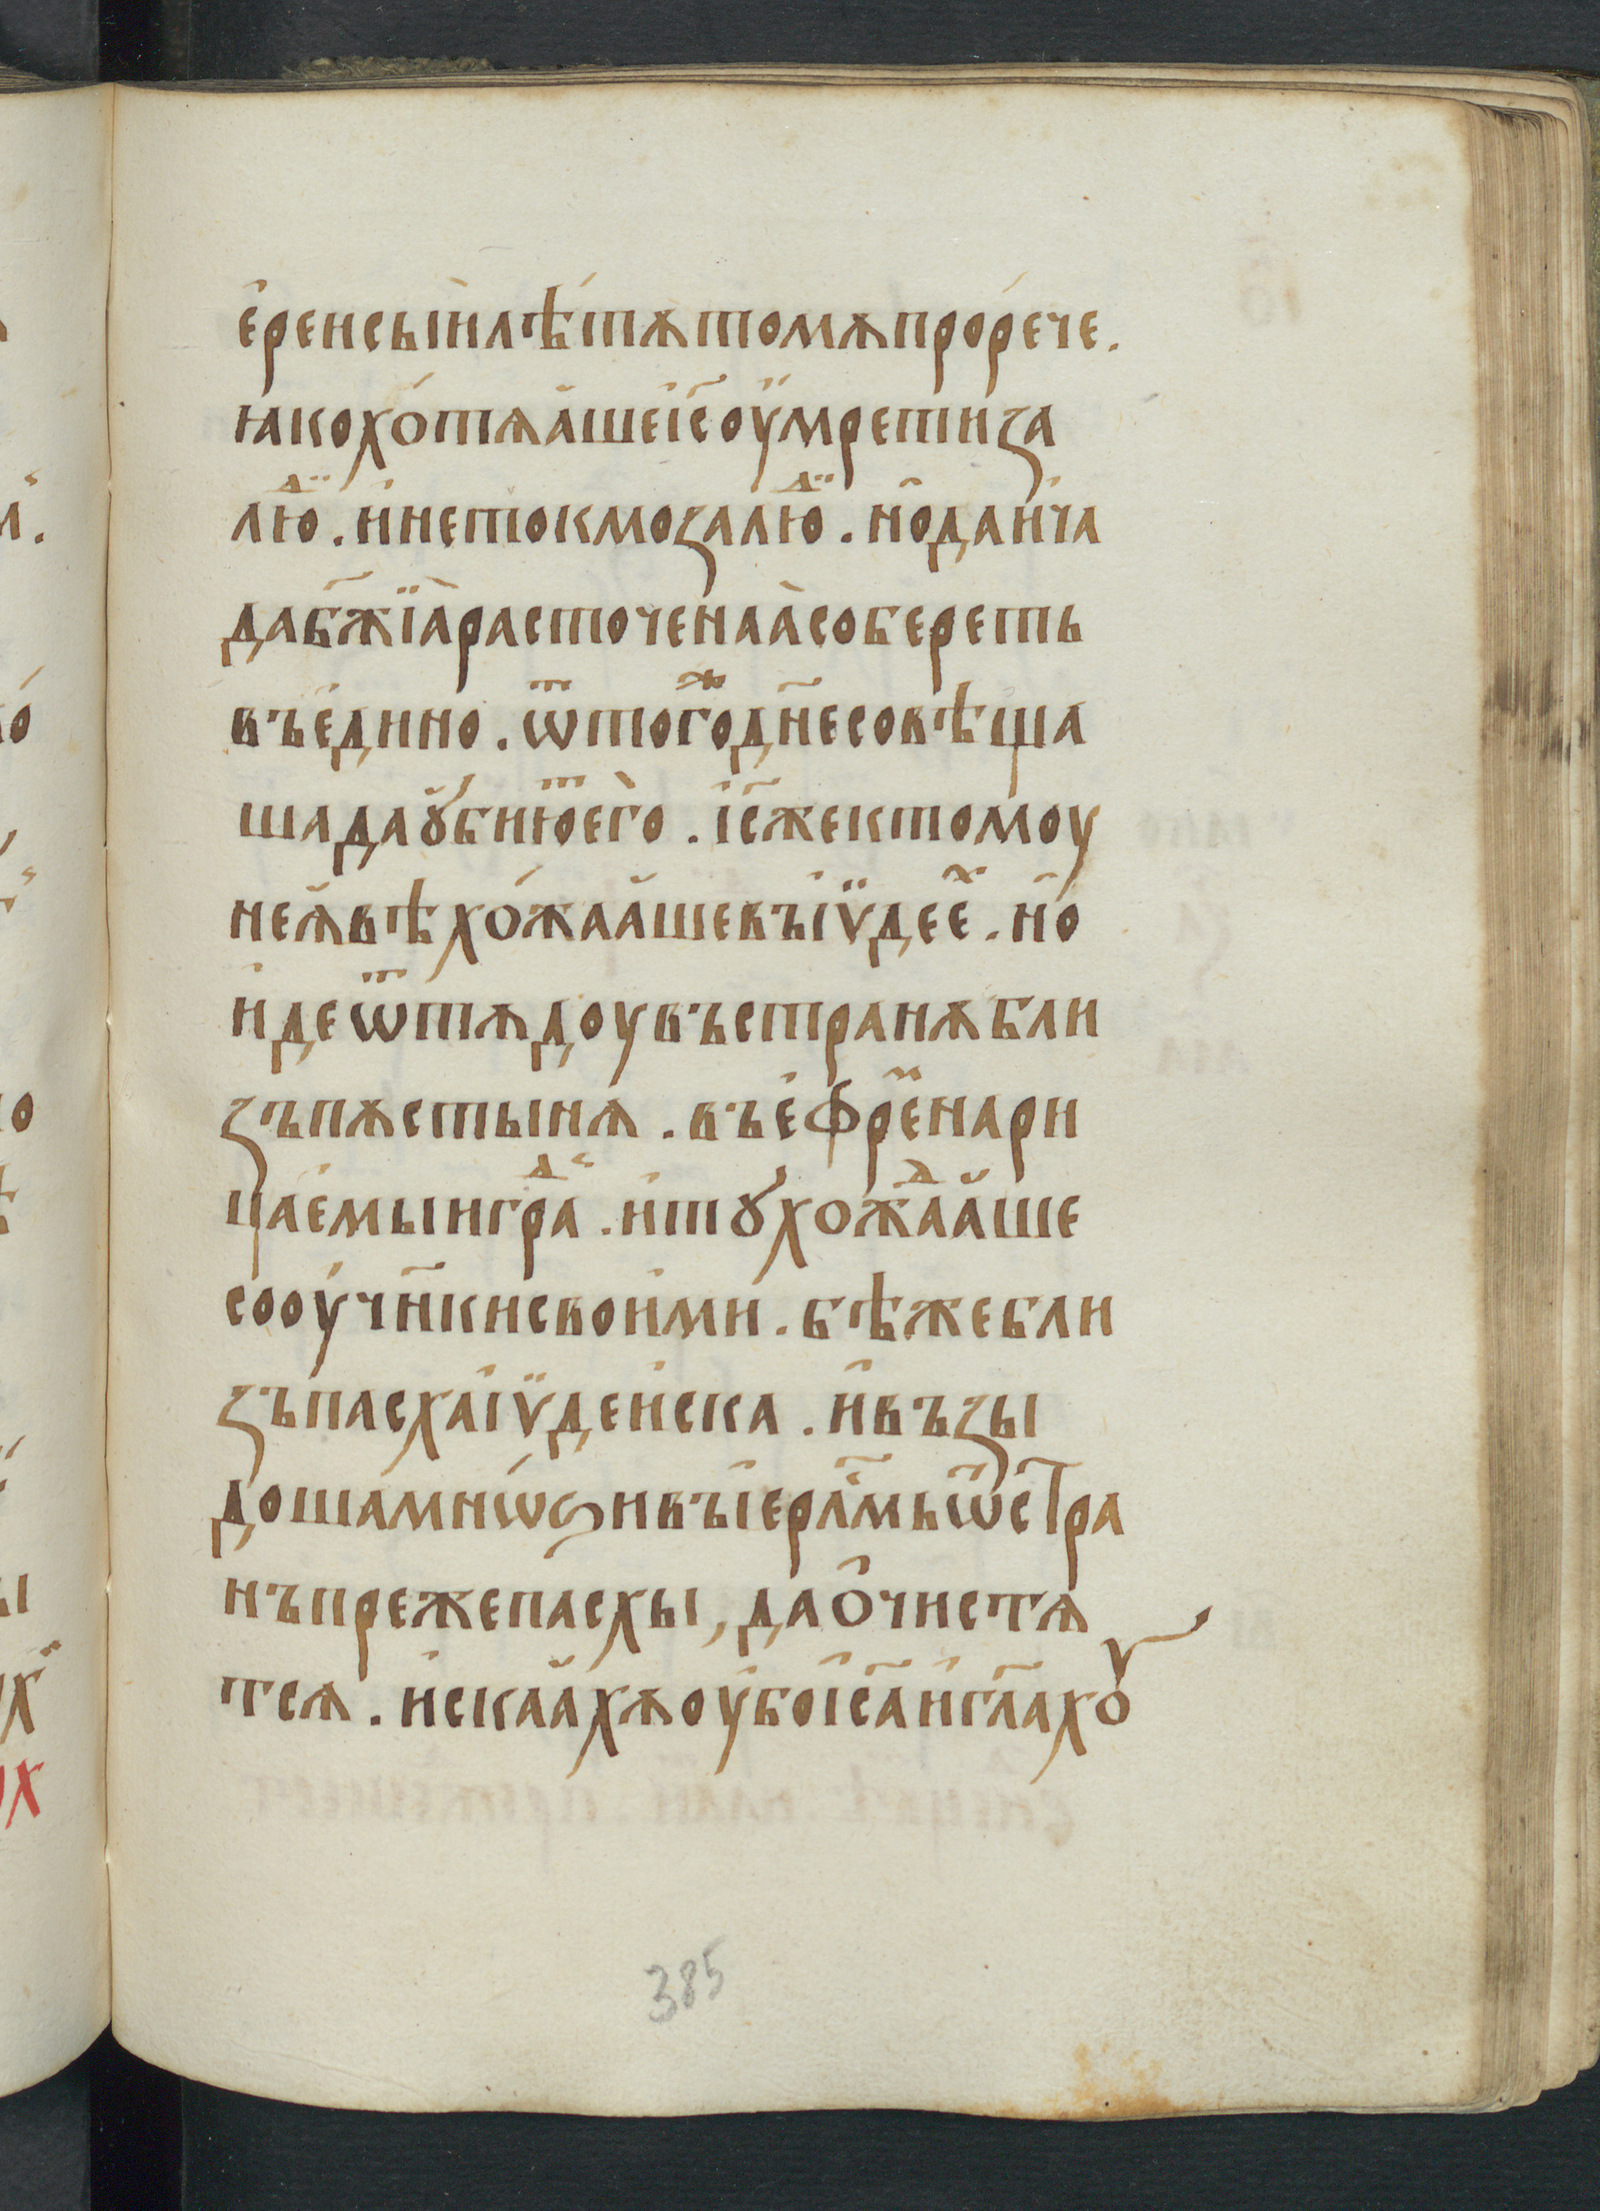 е҆ре́и сы̀и лѣ́тꙋ томꙋ проре́че.
ꙗко хо́тѧа҆ше і҆с҃ оу҆мрети за
лю҆ⷣ. и҆ не токмо за лю҆ⷣ. но҆ да и҆ ча
да бж҃їа̀ расточенаа̀ соберетъ
въ е҆дино. ѿ того́ⷤ дн҃е совѣща
ша да ꙋ҆бию́ⷮ е҆го̀. і҆с҃ же к томоу
не ꙗ҆вѣ хо́жаа҆ше въ і҆ѵ̈дее҆ⷯ. но҆
и҆де ѿтꙋдоу въ странꙋ бли
зъ пꙋстынѧ. въ е҆фре҆ⷨ нари
цае҆мыи гра́ⷣ. и҆ тꙋ́ хо́жⷣаа҆ше
со оу҆чн҃ки свои҆ми. бѣ же бли
зъ пасха і҆ѵ̈деи҆ска. и҆ възы
доша́ мнѡ́ѕи въ і҆ерⷭ҇лмъ ѿ стра
нъ преже па́схы, да ѻ҆чистѧ
тсѧ. и҆скаа҆хꙋ оу҆бо і҆с҃а и҆ гл҃ахоу
385